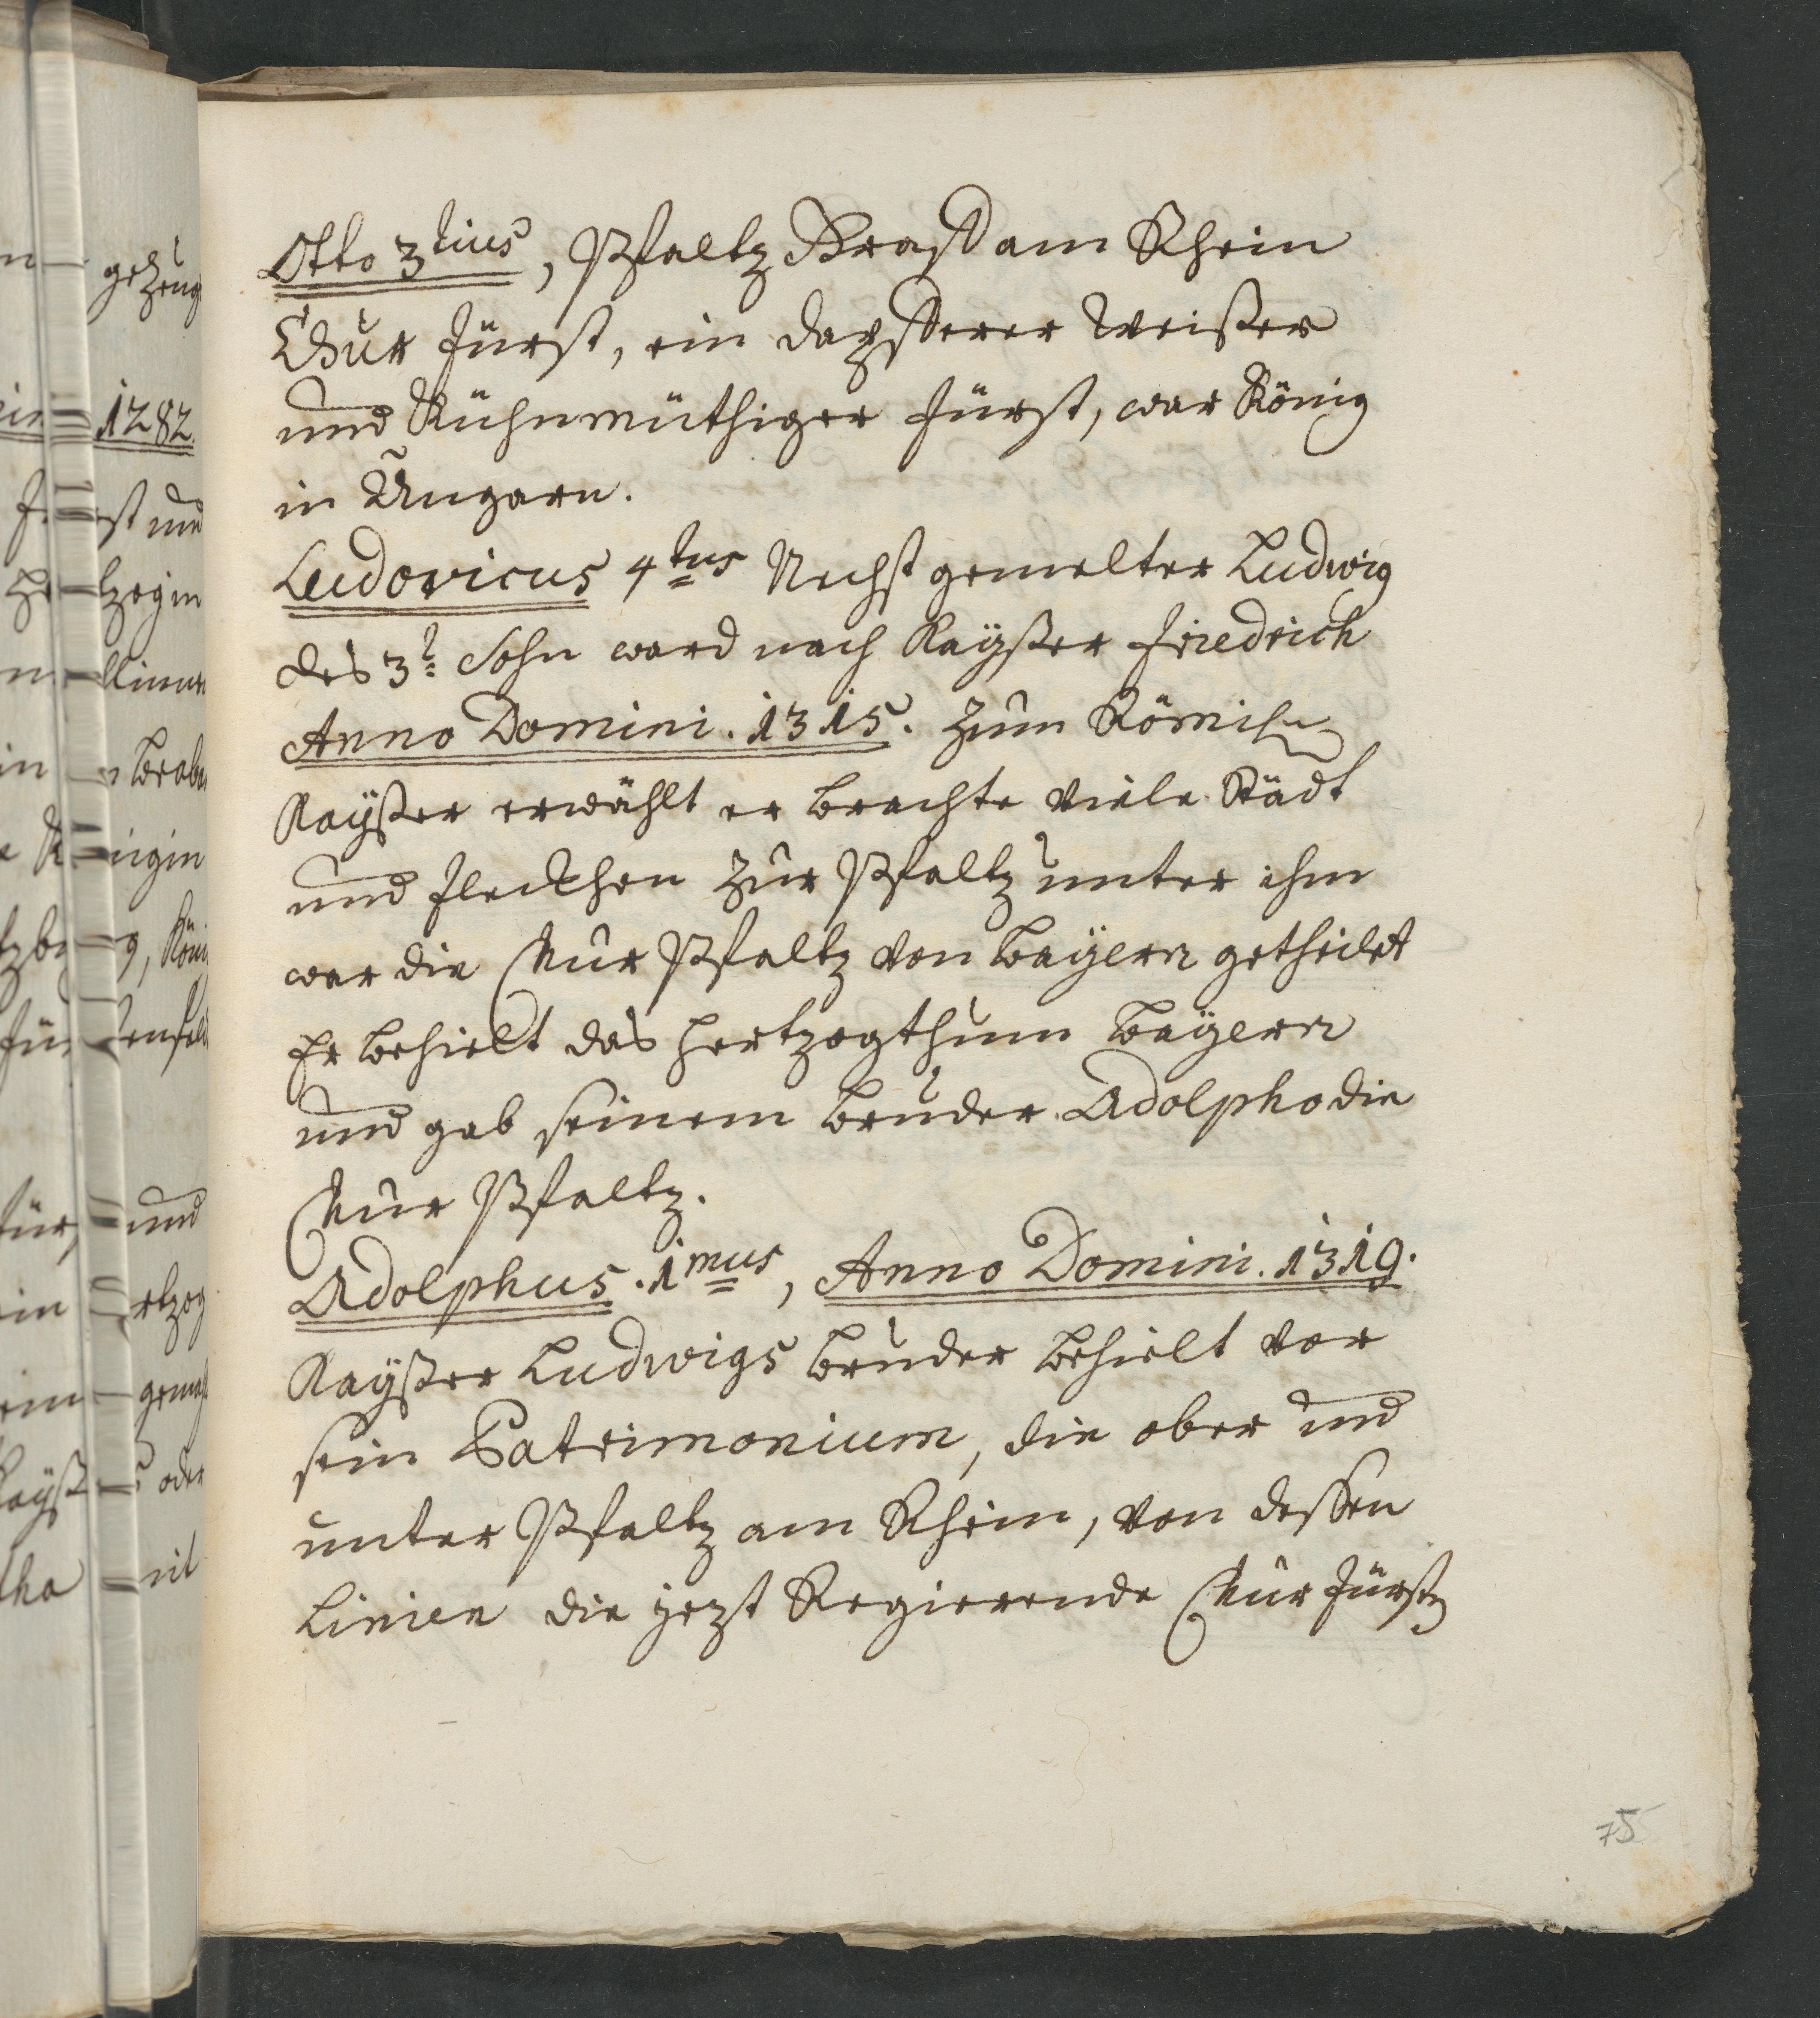 Otto 3tius, Pfaltz Graff am Rhein
Chur Fürst, ein dapfferer Weißer
und Kühnmüthiger Fürst, war König
in Ungarn.
Ludovicus 4tus Nechst gemelter Ludwig
des 3t Sohn ward nach Kayßer Friedrich
Anno Domini. 1315. zum Römischen
Kayßer erwählt er brachte viele Städt
und Fleckhen zur Pfaltz unter ihm
war die Chur Pfaltz von Bayern getheilet
Er behielt das Hertzogthum Bayern
und gab seinem Bruder Adolpho die
Chur Pfaltz.
Adolphus. 1mus, Anno Domini. 1319.
Kayßer Ludwigs Bruder behielt vor
sein Patrimonium, die ober und
unter Pfaltz am Rhein, von dessen
Linien die jezt Regierende Chur Fürsten
75
gezeug
1282.